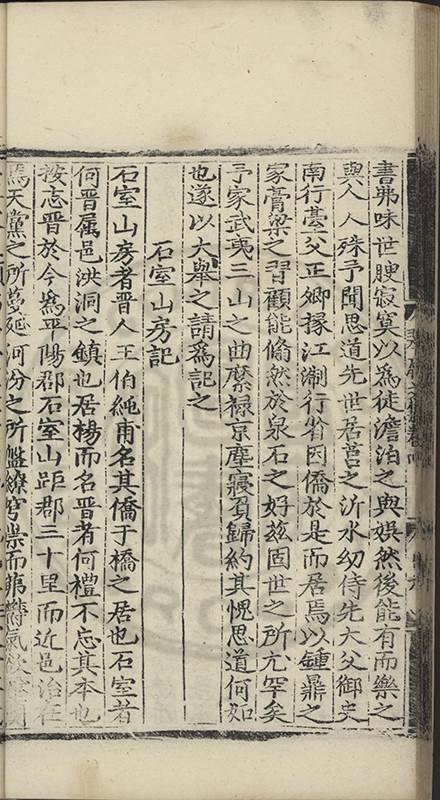 書弗味世腴寂寞以為徒澹泊之與娛然後能有而樂之
與人人殊予聞思道先世居莒之沂水幼侍先大父御史
南行臺父正卿掾江浙行省因僑於是而居焉以鍾鼎之
家膏粱之習顧能翛然於泉石之好茲固世之所尤罕矣
予家武夷三山之曲縻祿京塵寢負歸約其愧思道何如
也遂以大舉之請為記之
石室山房記
石室山房者晋人王伯純甫名其僑于橋之居也石室者
何晋屬邑洪洞之鎮也居楊而名晋者何禮不忘其本也
按志晋於今為平陽郡石室山距郡三十里而近邑治在
焉天黨之所蔓延河汾之所盤繚穹崇而茀欝氣